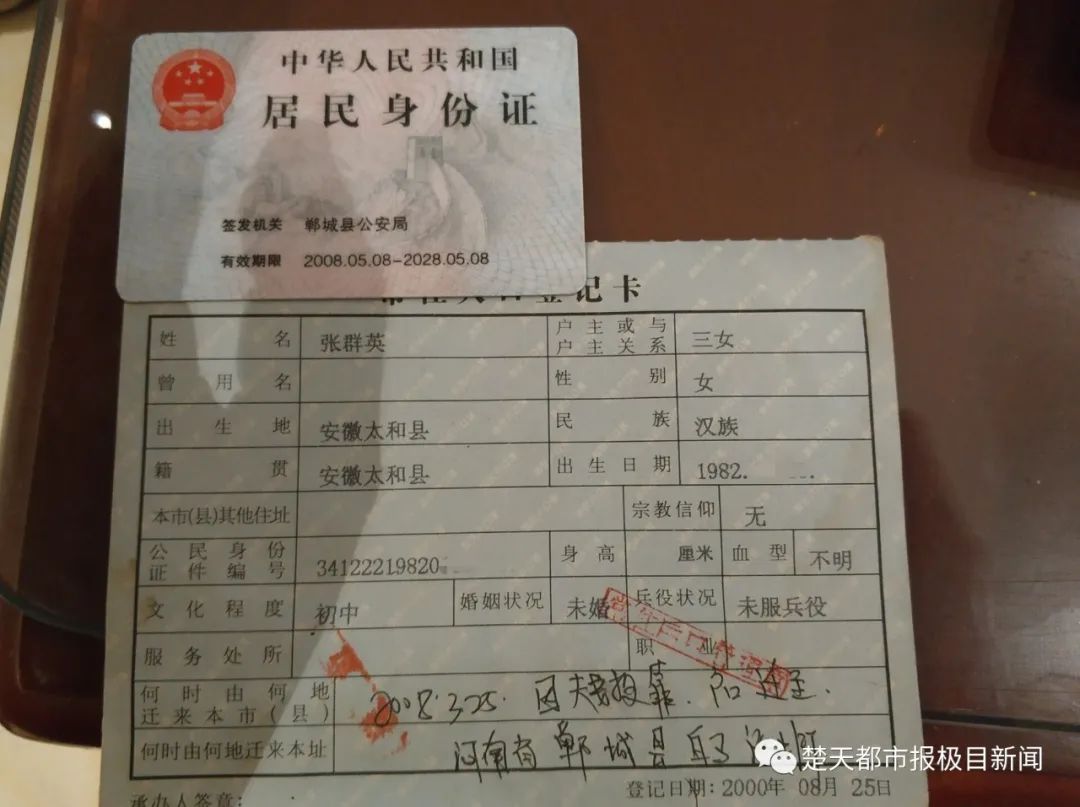 中华人民共和国
居民身份证
签发机关 郸城县公安局
有效期限 2008.05.08-2028.05.08
登记卡
姓名 张群英 户主或与户主关系 三女
曾用名 性别 女
出生地 安徽太和县 民族 汉族
籍贯 安徽太和县 出生日期 1982.
本市(县)其他住址 宗教信仰 无
公民身份证件编号 34122219820 身高 厘米 血型 不明
文化程度 初中 婚姻状况 未婚 兵役状况 未服兵役
服务处所 职业
何时由何地迁来本市(县) 2008.3.25. 因夫妻投靠.
何时由何地迁来本址 河南省郸城县
登记日期:2000年 08月 25日
承办人签章:
楚天都市报极目新闻